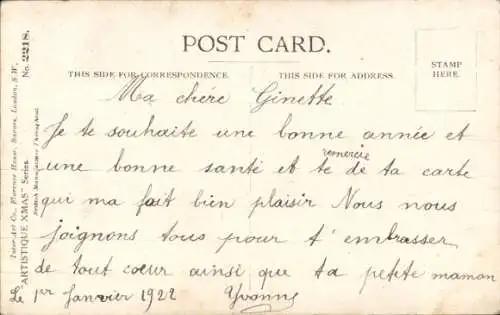 POST CARD.
THIS SIDE FOR CORRESPONDENCE.
THIS SIDE FOR ADDRESS.
STAMP
HERE.
Inter-Art Co., Florence House, Barnes, London, S.W.
"ARTISTIQUE XMAS" Series. No. 2218.
British Manufacture Throughout.
Ma chère Ginette
Je te souhaite une bonne année et
une bonne santé et te remercie de ta carte
qui ma fait bien plaisir Nous nous
joignons tous pour t'embrasser
de tout coeur ainsi que ta petite maman
Le 1er Janvier 1922 Yvonne